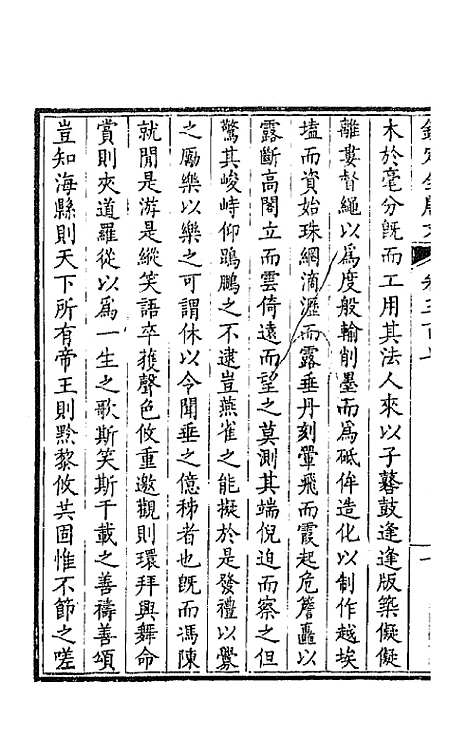 欽定全唐文 卷三百十
木於毫分旣而工用其法人來以子鼛鼓逢逢版築儗儗
離婁督繩以爲度般輸削墨而爲砥侔造化以制作越埃
壒而資始珠網滴瀝而露垂丹刻翬飛而霞起危簷矗以
露斷高閣立而雲倚遠而望之莫測其端倪迫而察之但
驚其峻峙仰鵾鵬之不逮豈燕雀之能擬於是發禮以釁
之勵樂以樂之可謂休以令聞垂之億秭者也旣而馮陳
就閒是游是縱笑語卒獲聲色攸重邀觀則環拜興舞命
賞則夾道羅從以爲一生之歌斯笑斯千載之善禱善頌
豈知海縣則天下所有帝王則黔黎攸共固惟不節之嗟